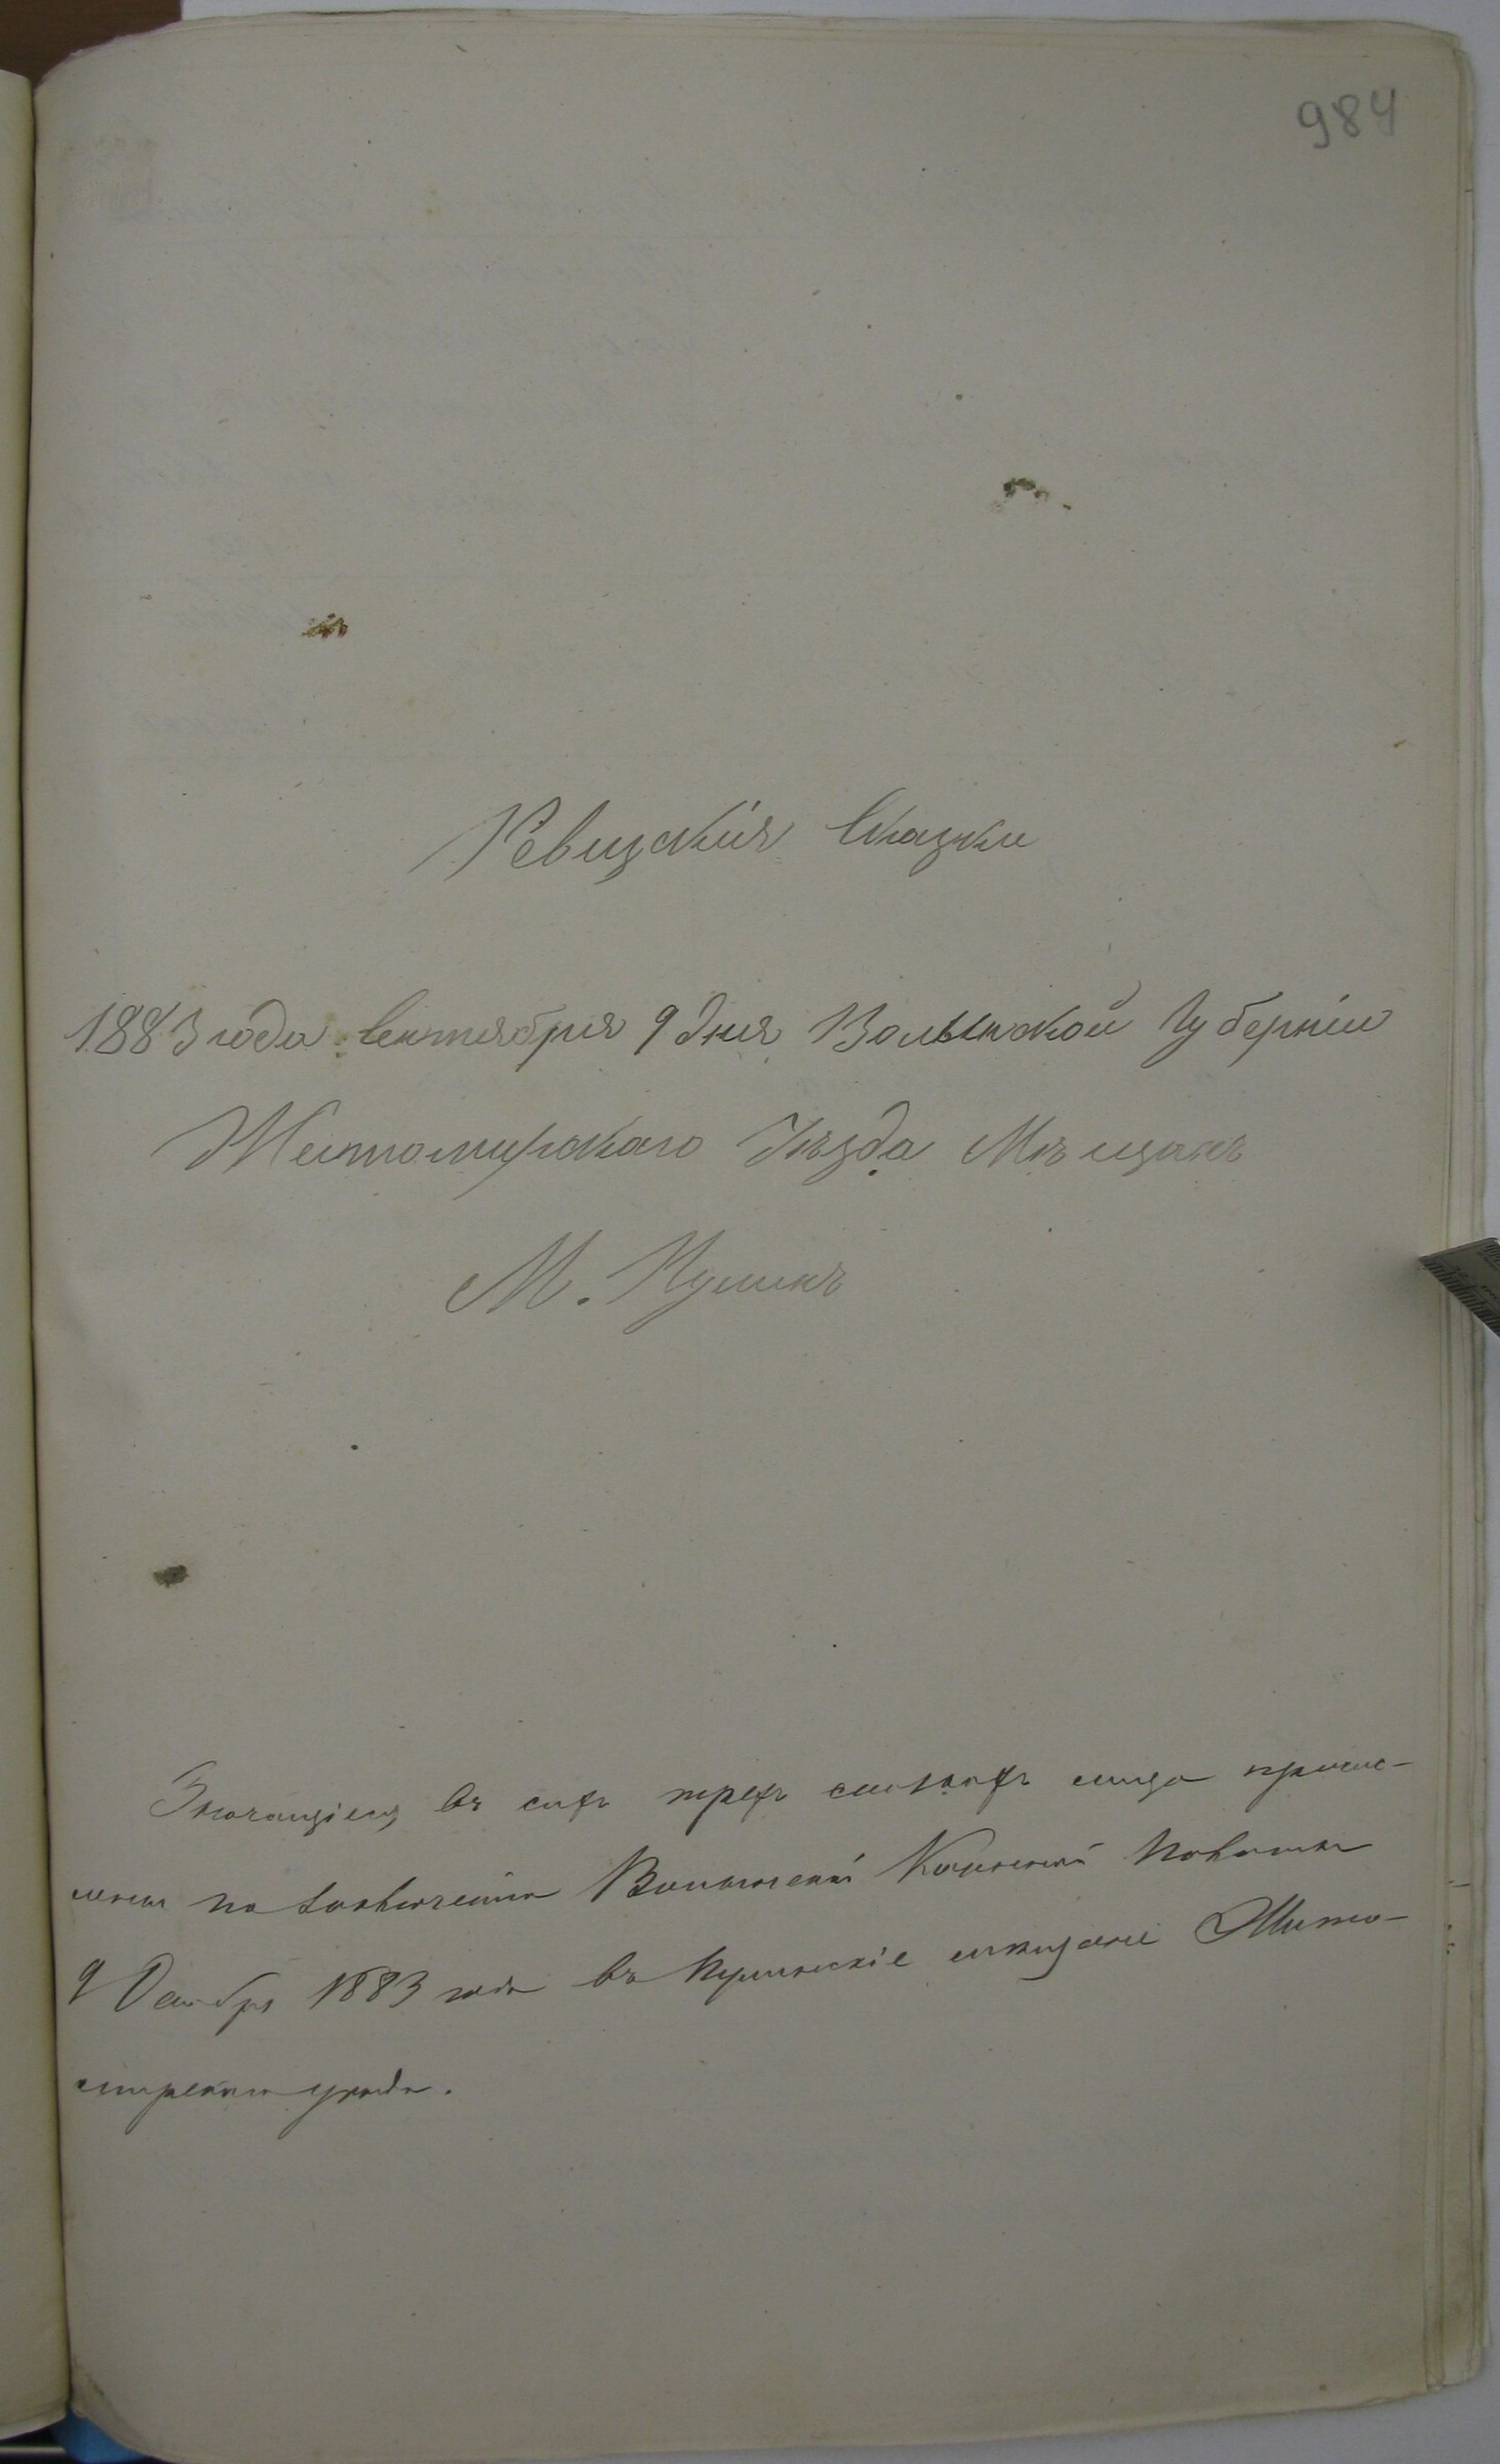 984
Ревизскія Сказки
1883 года Сентября 9 дня Волынской Губерніи
Житомирскаго Уѣзда Мѣщанъ
М. Пулинъ
Значащіеся въ сихъ трехъ листахъ лица причис-
лены по Волынской Казенной Палаты
9 1883 года въ Пулинскіе мѣщане Жито-
мирскаго уѣзда.